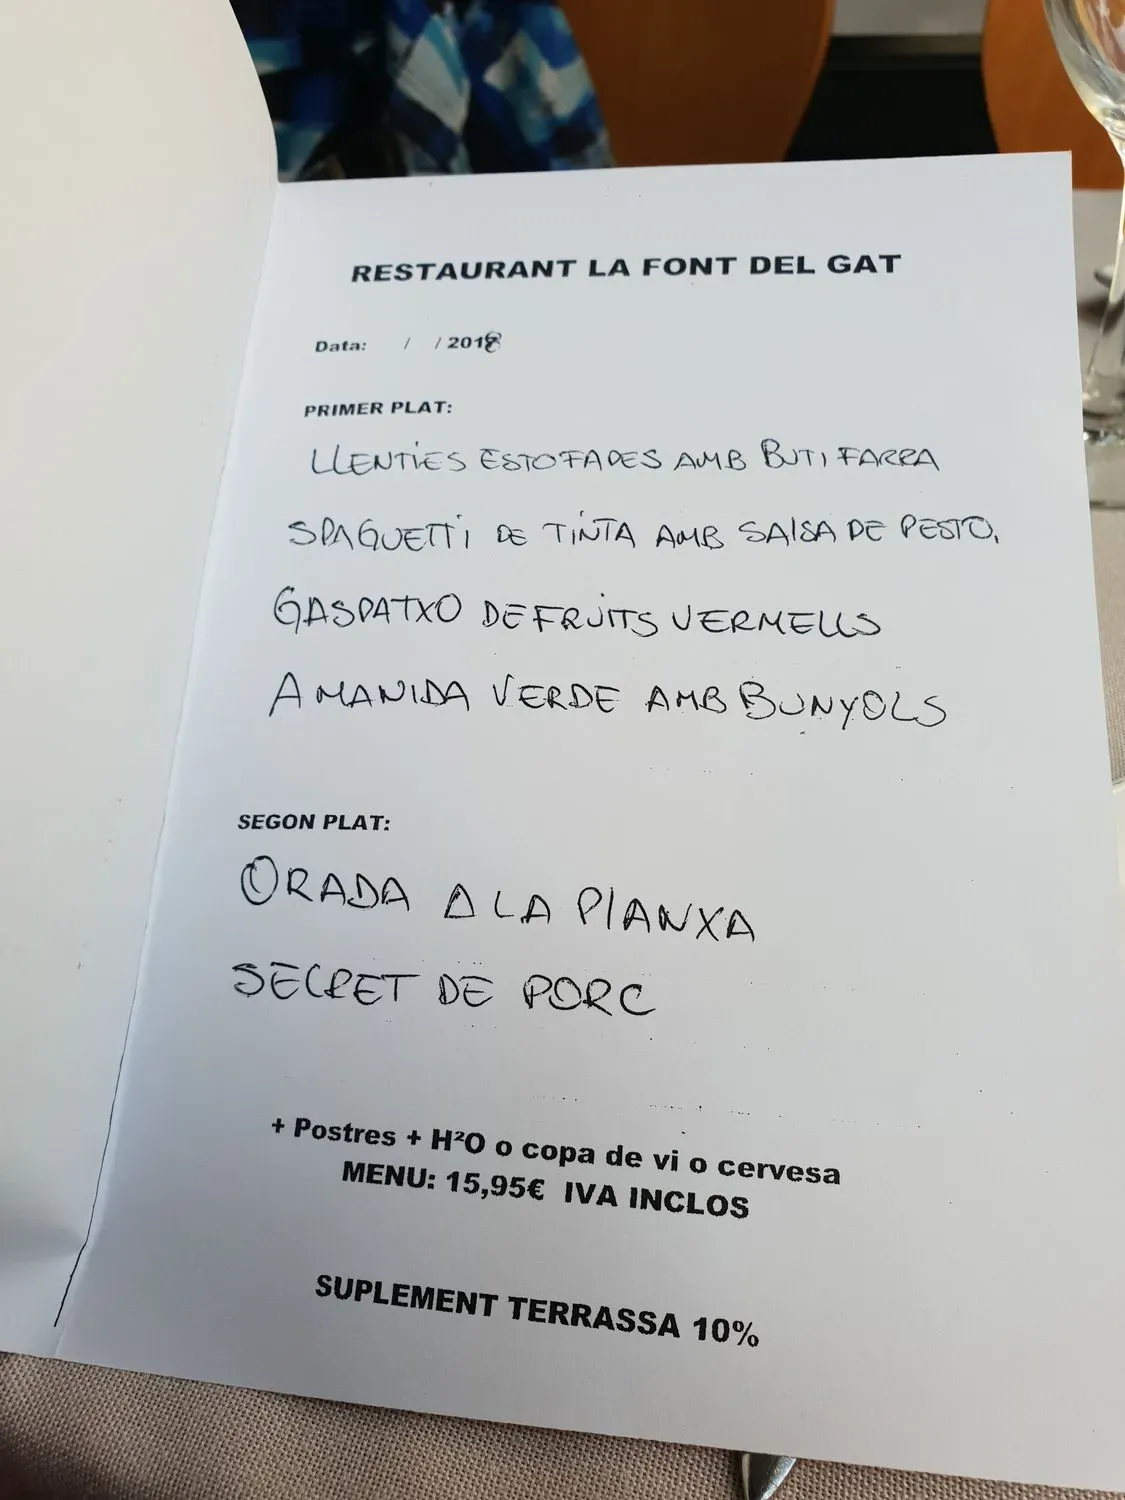 RESTAURANT LA FONT DEL GAT
Data: / / 2018
PRIMER PLAT:
LLENTIES ESTOFADES AMB BUTIFARRA
SPAGUETTI DE TINTA AMB SALSA DE PESTO,
GASPATXO DE FRUITS VERMELLS
AMANIDA VERDE AMB BUNYOLS
SEGON PLAT:
ORADA A LA PLANXA
SECRET DE PORC
+ Postres + H²O o copa de vi o cervesa
MENU: 15,95€ IVA INCLOS
SUPLEMENT TERRASSA 10%